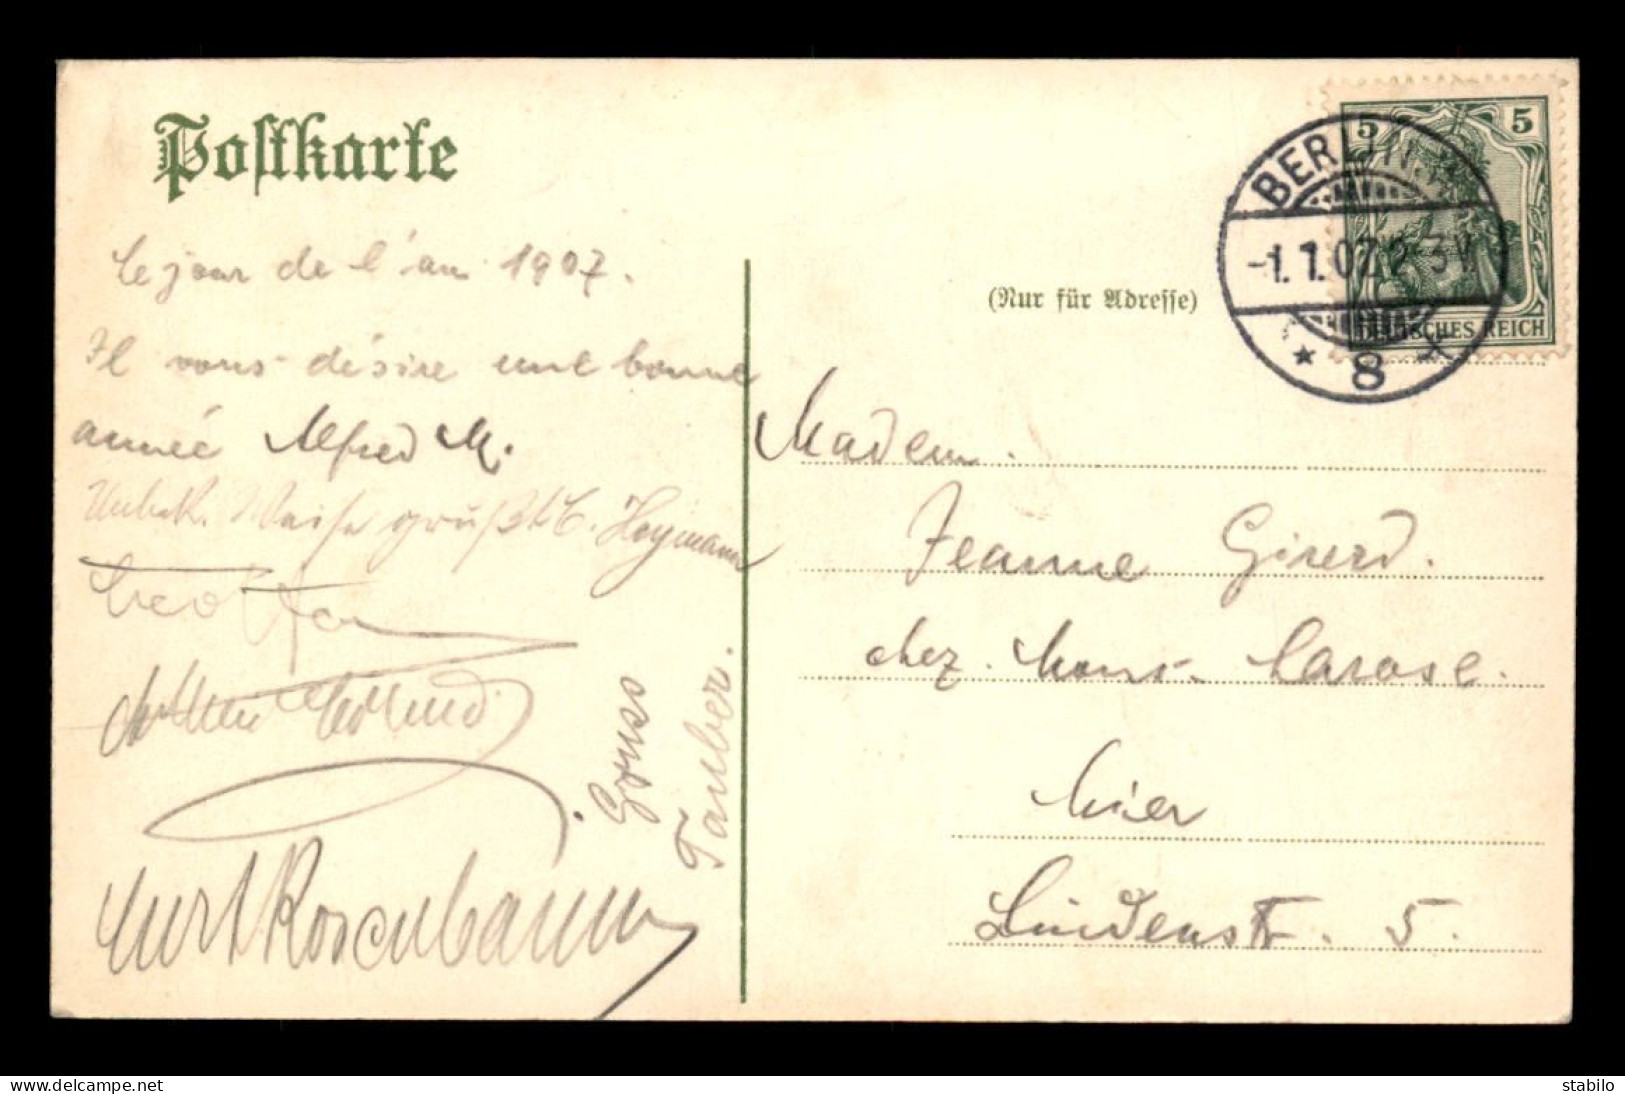 Postkarte
Le jour de l'an 1907.
Il vous désire une bonne
année Alfred M.
Unbek. Weise grüßt C. Heymann
Leo
Kurt Rosenbaum
Gruss
Tauber.
(Nur für Adresse)
BERLIN. W.
-1. 1. 07. 2-3 N.
* 8 *
5 5
DEUTSCHES REICH
Madem.
Jeanne Girerd.
chez. Mons. Larose.
hier
Lindenstr. 5.
stabilo